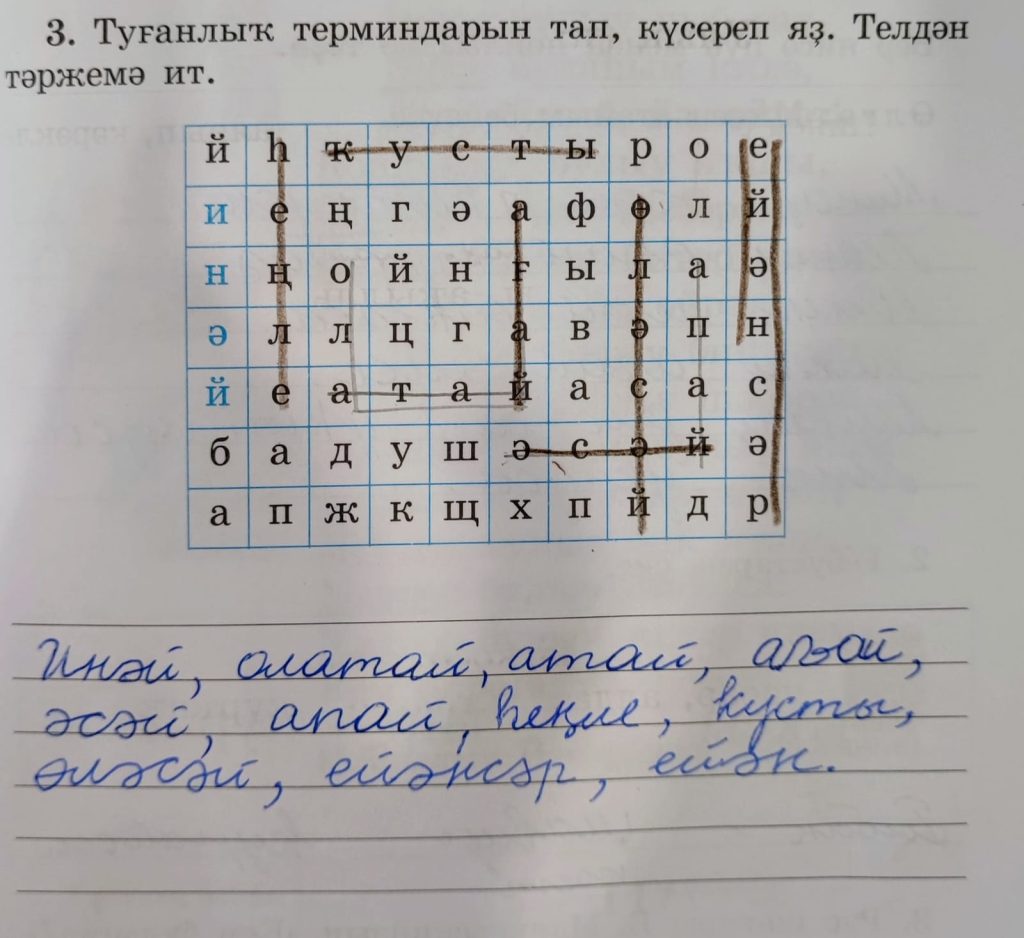 3. Туғанлыҡ терминдарын тап, күсереп яҙ. Телдән
тәржемә ит.
й һ ҡ у с т ы р о е
и е ң г ә а ф ө л й
н ң о й н ғ ы л а ә
ә л л ц г а в ә п н
й е а т а й а с а с
б а д у ш ә с ә й ә
а п ж к щ х п й д р
Инәй, олатай, атай, ағай,
әсәй, апай, һеңле, ҡусты,
өләсәй, ейәнсәр, ейән.